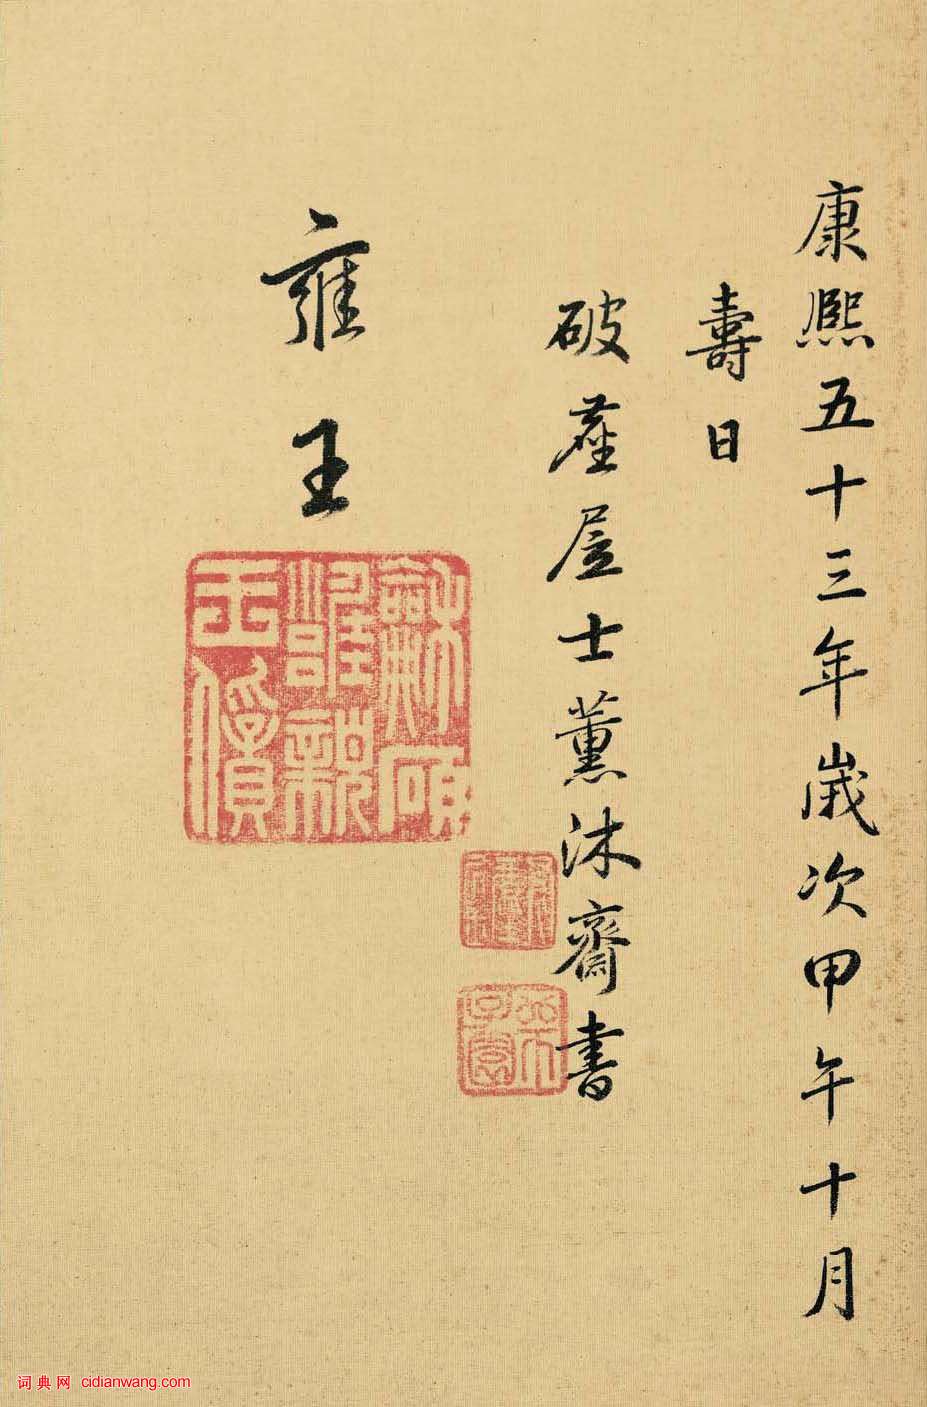 康熙五十三年歲次甲午十月
壽日
破塵居士薰沐齋書
雍王
詞典网 cidianwang.com